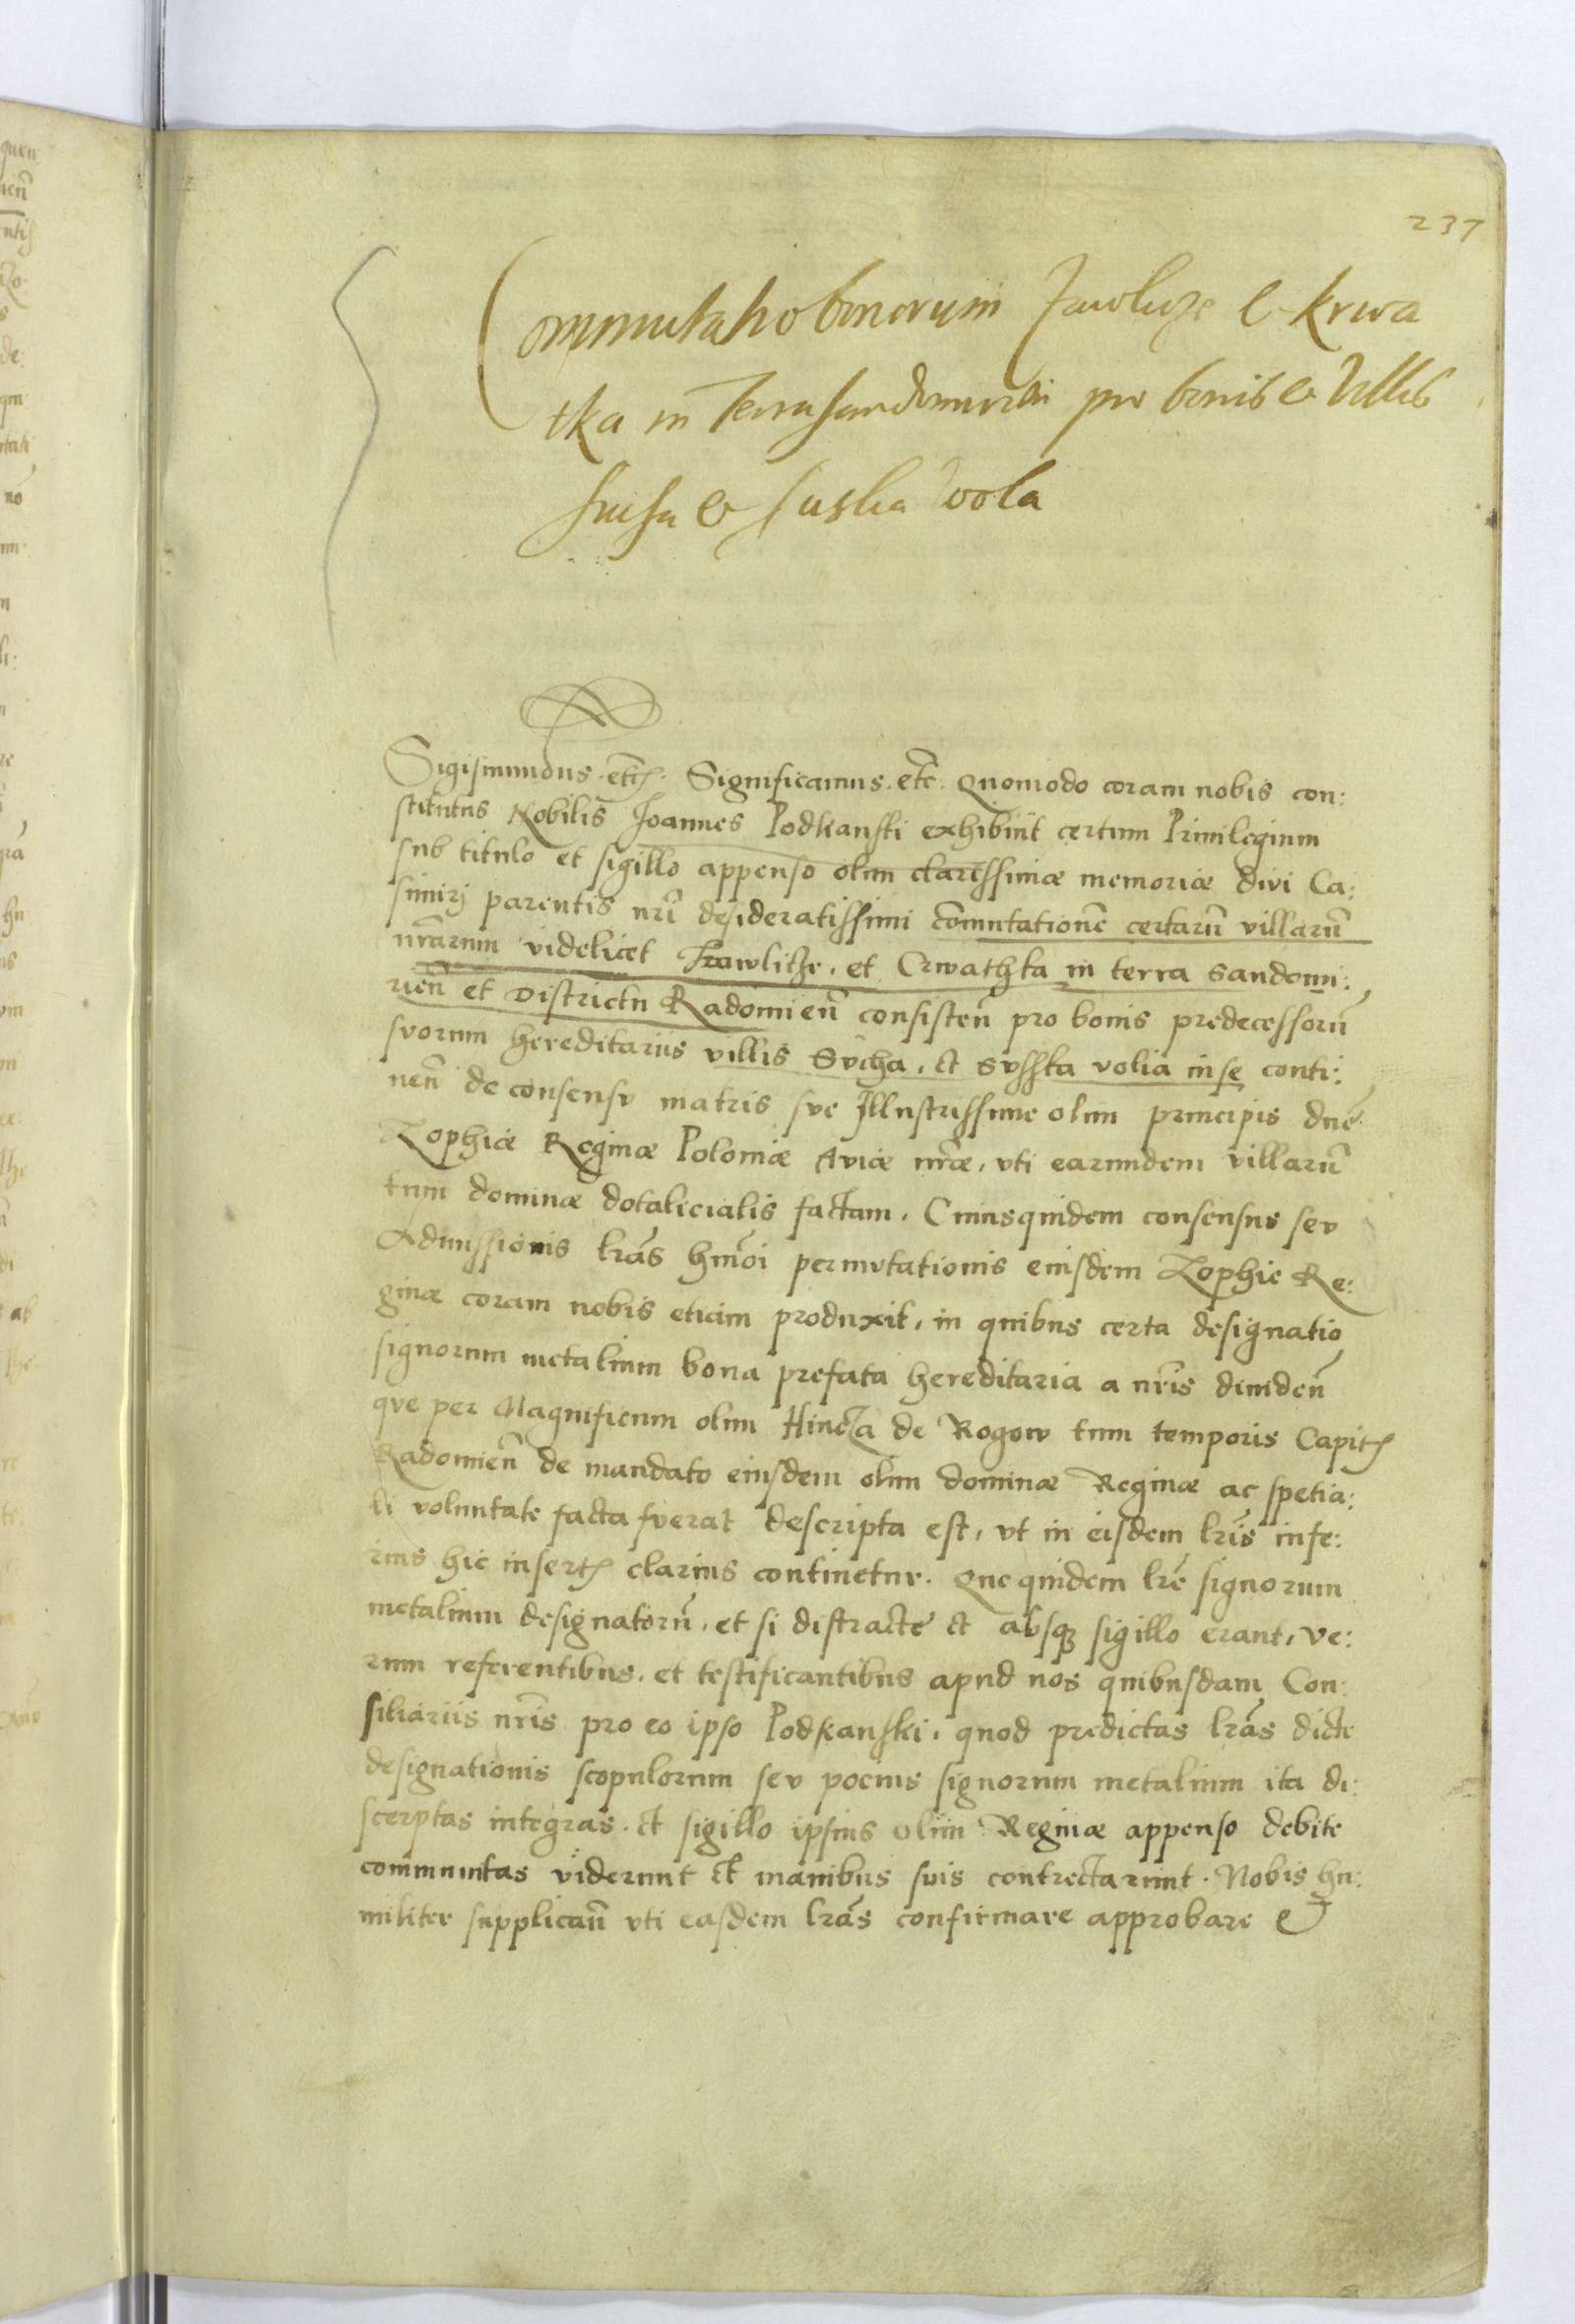 237
Commutatio bonorum Jawlicze et krwa
tka in Terra Sandomirien pro bonis et Villis
Sucha et Suska wola
Sigismundus. etc. Significamus. etc. Quomodo coram nobis con:
stitutus Nobilis Joannes Podkanski exhibuit certum Priuilegium
sub titulo et sigillo appenso olim clarissimæ memoriæ diui Ca:
simirj parentis nrī desideratissimi cōmutationē certarū villarū
nrārum videlicet Jrawlicze, et Crwathka in terra Sandomi:
rieñ et Districtu Radomieñ consisteñ pro bonis predecessorū
suorum hereditariis villis Svcha, et Svsska volia in se conti:
neñ de consensv matris sve Illustrissime olim principis dnē
Zophiæ Reginæ Poloniæ Auiæ nrǣ, vti earundem villarū
tum dominæ dotalicialis factam. Cuiusquidem consensus sev
Admissionis lrās hmōi permvtationis eiusdem Zophie Re:
ginæ coram nobis etiam produxit, in quibus certa designatio
signorum metalium bona prefata hereditaria a nrīs diuideñ
qve per Magnificum olim Hincza de Rogow tum temporis Capit
Radomieñ de mandato eiusdem olim dominæ Reginæ ac spetia:
li voluntate facta fverat descripta est, vt in eisdem lrīs infe:
rius hic insert clarius continetur. Que quidem lrē signorum
metalium designatorū, et si distracte et absqȝ sigillo erant, ve:
rum referentibus, et testificantibus apud nos quibusdam Con:
siliariis nrīs pro eo ipso Podkanski, quod predictas lrās dicte
designationis scopulorum sev pocius signorum metalium ita di:
scerptas integras. et sigillo ipsius olim Reginæ appenso debite
communitas viderunt et manibus suis contrectarunt. Nobis hu:
militer supplicañ vti easdem lrās confirmare approbare et